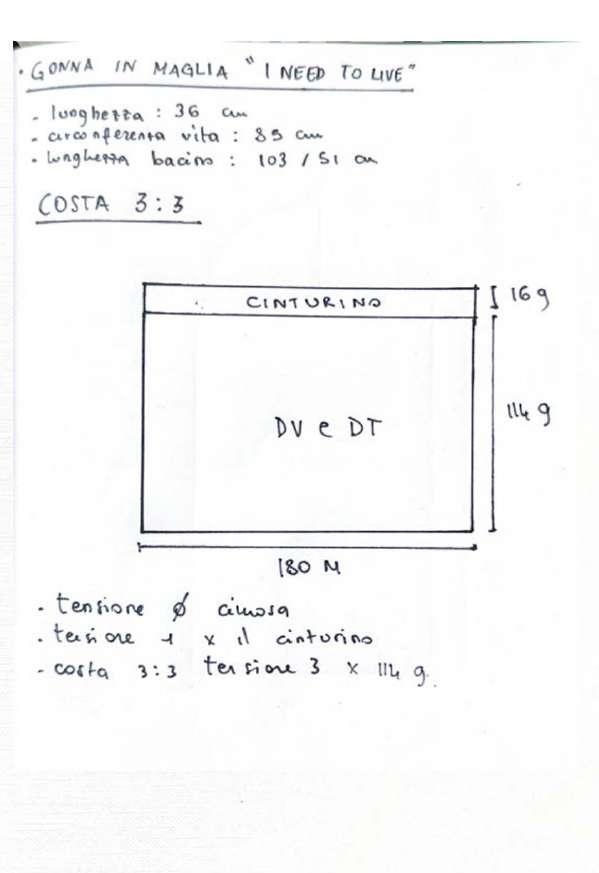 · GONNA IN MAGLIA "I NEED TO LIVE"
- lunghezza : 36 cm
- circonferenza vita : 85 cm
- lunghezza bacino : 103 / 51 cm
COSTA 3:3
CINTURINO
16 g
DV e DT
114 g
180 M
- tensione ∅ cimosa
- tensione 1 x il cinturino
- costa 3:3 tensione 3 x 114 g.